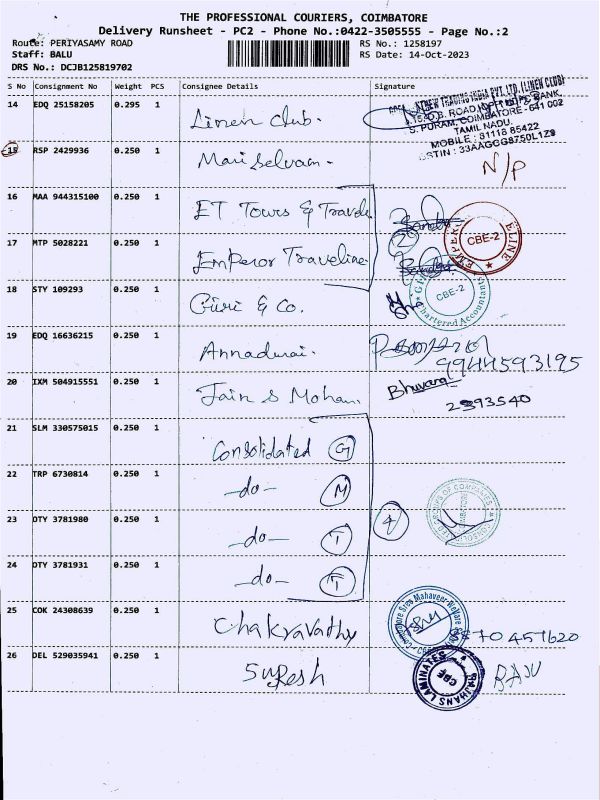 THE PROFESSIONAL COURIERS, COIMBATORE
Delivery Runsheet - PC2 - Phone No.:0422-3505555 - Page No.:2
Route: PERIYASAMY ROAD
RS No.: 1258197
Staff: BALU
RS Date: 14-Oct-2023
DRS No.: DCJB125819702
S No Consignment No Weight PCS Consignee Details Signature
14 EDQ 25158205 0.295 1 Linen club.
S. PURAM, COIMBATORE - 641 002
TAMIL NADU.
MOBILE : 31118 85422
GSTIN : 33AAGCG8750L1Z9
15 RSP 2429936 0.250 1 Mariselvam. N/P
16 MAA 944315100 0.250 1 ET Tours & Travels
17 MTP 5028221 0.250 1 Emperor Traveline 2
CBE-2
18 STY 109293 0.250 1 Guri & Co.
CBE-2
Chartered Accountants
19 EDQ 16636215 0.250 1 Annadurai.
9944593195
20 IXM 504915551 0.250 1 Jain S Mohan. Bhuvana
2393540
21 SLM 330575015 0.250 1 Consolidated G
22 TRP 6730814 0.250 1 -do- M
23 OTY 3781980 0.250 1 -do- T 4
24 OTY 3781931 0.250 1 -do- T
25 COK 24308639 0.250 1 Chakravathy
70457620
26 DEL 529035941 0.250 1 Suresh RAJU
RAJHANS LAMINATES
CBE